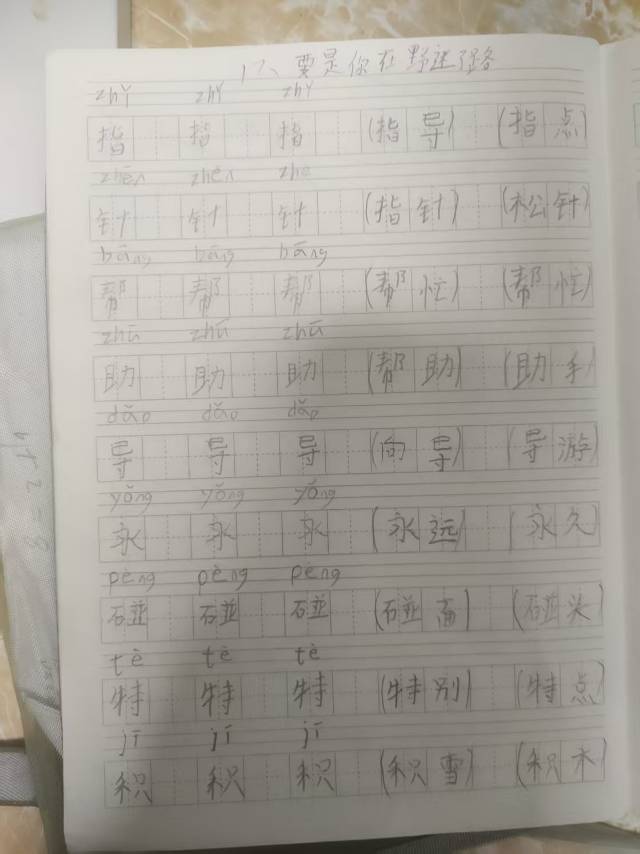 17、要是你在野迷了路
zhǐ zhǐ zhǐ
指 指 指 (指导) (指点)
zhēn zhēn zhe
针 针 针 (指针) (松针)
bāng bāng bāng
帮 帮 帮 (帮忙) (帮忙)
zhū zhū zhū
助 助 助 (帮助) (助手)
dǎo dǎo dǎo
导 导 导 (向导) (导游)
yǒng yǒng yǒng
永 永 永 (永远) (永久)
pèng pèng pèng
碰 碰 碰 (碰) (碰头)
tè tè tè
特 特 特 (特别) (特点)
jī jī jī
积 积 积 (积雪) (积木)